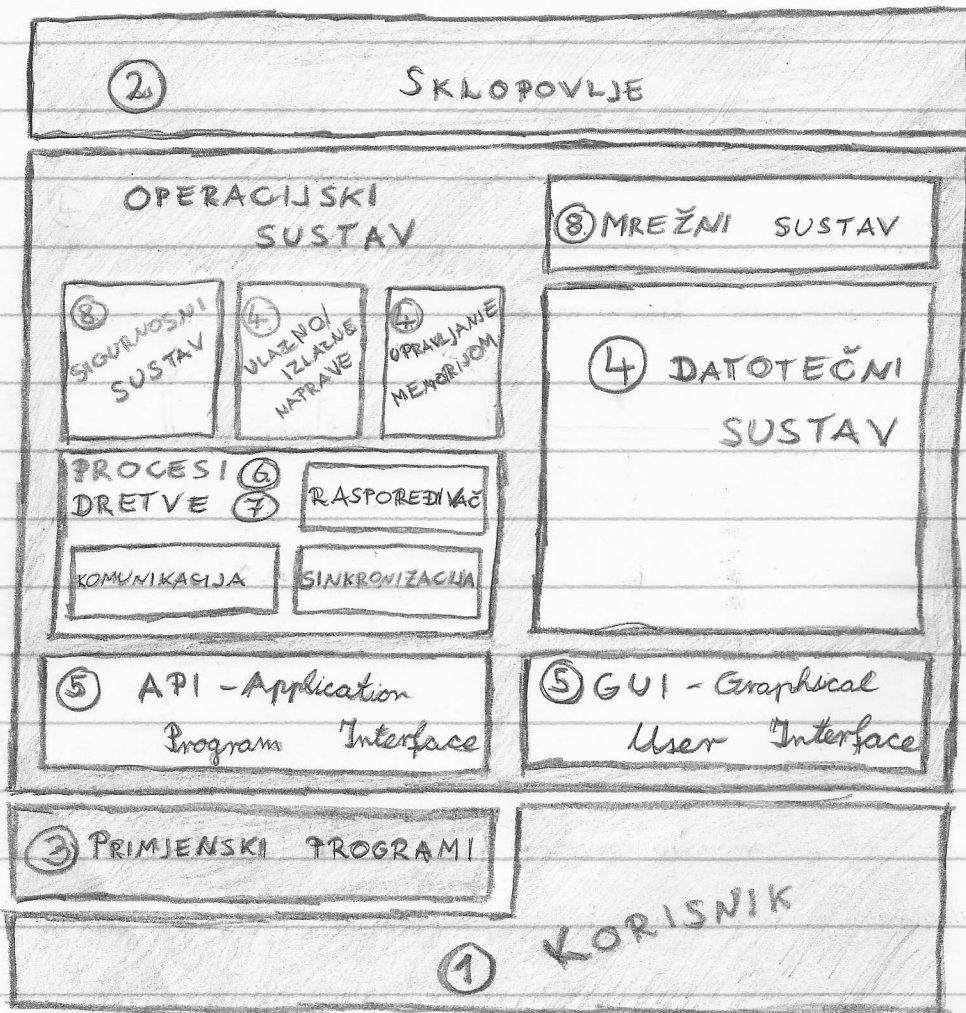 2 SKLOPOVLJE
OPERACIJSKI
SUSTAV
8 MREŽNI SUSTAV
8
SIGURNOSNI
SUSTAV
4
ULAZNO/
IZLAZNE
NAPRAVE
4
UPRAVLJANJE
MEMORIJOM
4 DATOTEČNI
SUSTAV
PROCESI 6
DRETVE 7
RASPOREĐIVAČ
KOMUNIKACIJA
SINKRONIZACIJA
5 API - Application
Program Interface
5 GUI - Graphical
User Interface
3 PRIMJENSKI PROGRAMI
1 KORISNIK